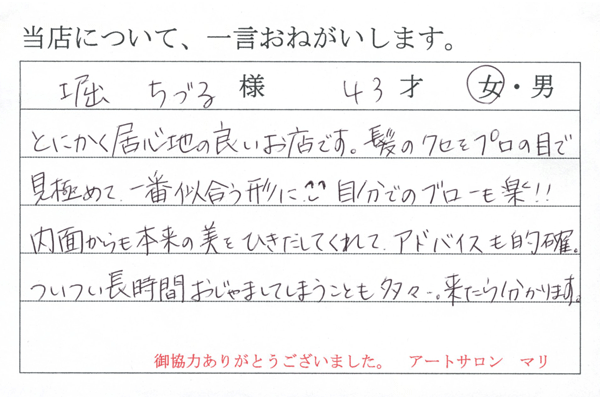 当店について、一言おねがいします。
堀 ちづる 様 43才 女・男
とにかく居心地の良いお店です。髪のクセをプロの目で
見極めて、一番似合う形に 自分でのブローも楽!!
内面からも本来の美をひきだしてくれて、アドバイスも的確。
ついつい長時間おじゃましてしまうことも多々…。来たら分かります。
御協力ありがとうございました。 アートサロン マリ